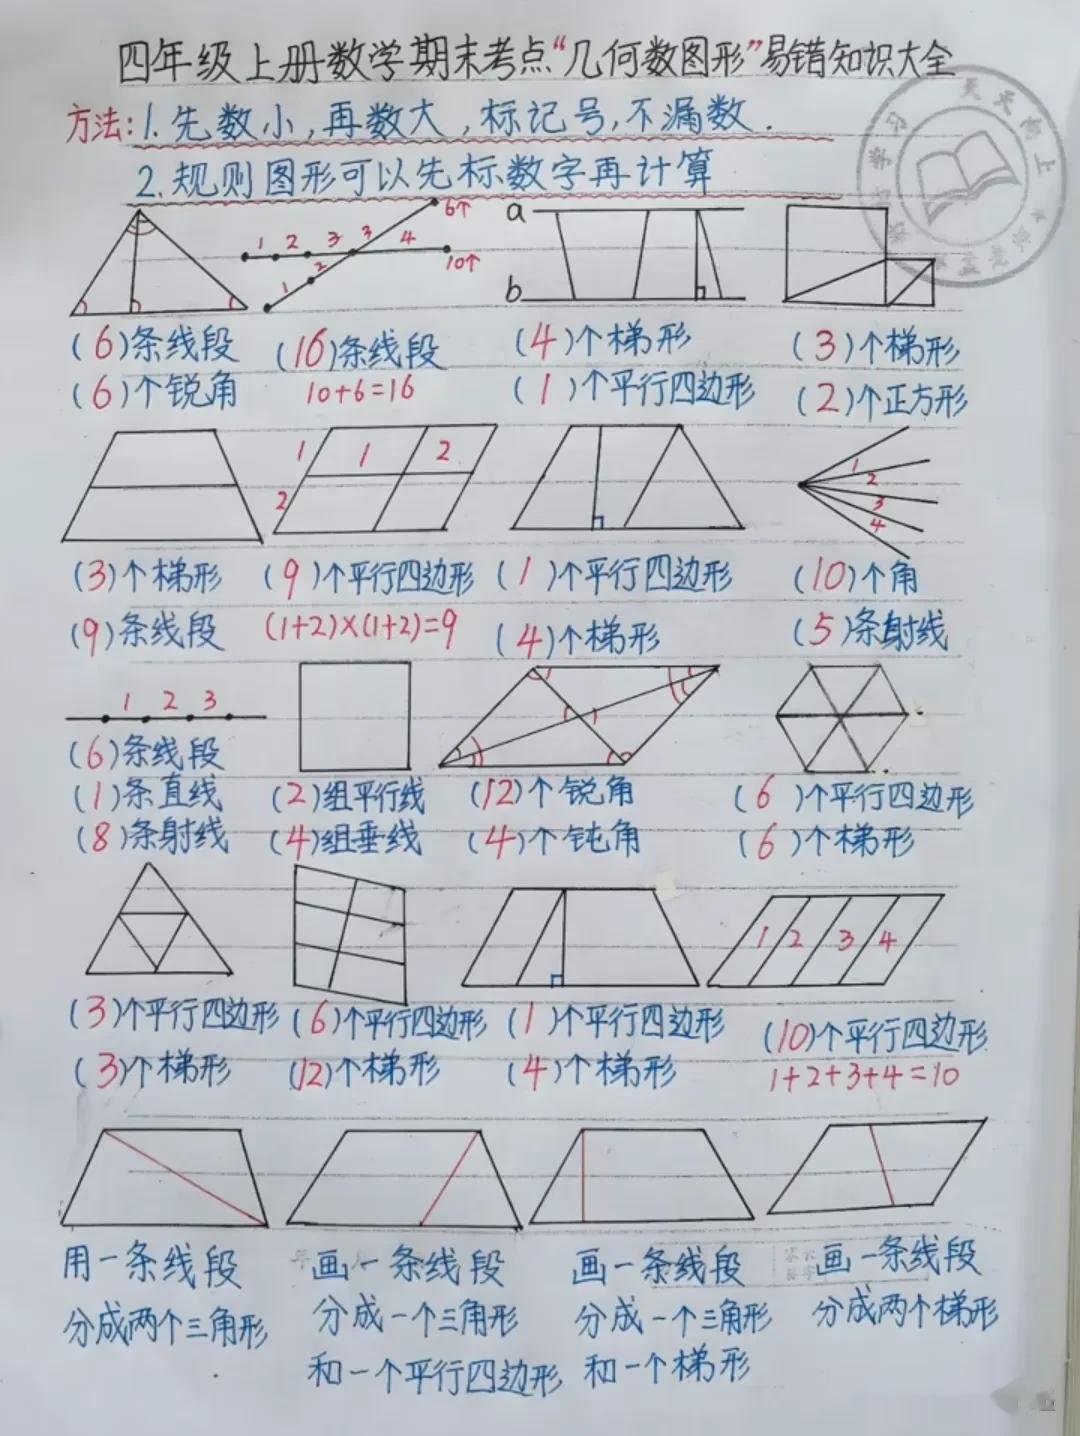 四年级上册数学期末考点“几何数图形”易错知识大全
方法:1.先数小,再数大,标记号,不漏数.
2.规则图形可以先标数字再计算
天天向上
1 2 3 3 4 6个
1 2 10个
a
b
(6)条线段 (16)条线段 (4)个梯形 (3)个梯形
(6)个锐角 10+6=16 (1)个平行四边形 (2)个正方形
1 1 2
2
1
2
3
4
(3)个梯形 (9)个平行四边形 (1)个平行四边形 (10)个角
(9)条线段 (1+2)×(1+2)=9 (4)个梯形 (5)条射线
1 2 3
(6)条线段
(1)条直线 (2)组平行线 (12)个锐角 (6)个平行四边形
(8)条射线 (4)组垂线 (4)个钝角 (6)个梯形
1 2 3 4
(3)个平行四边形 (6)个平行四边形 (1)个平行四边形 (10)个平行四边形
(3)个梯形 (12)个梯形 (4)个梯形 1+2+3+4=10
用一条线段 画一条线段 画一条线段 画一条线段
分成两个三角形 分成一个三角形 分成一个三角形 分成两个梯形
和一个平行四边形 和一个梯形